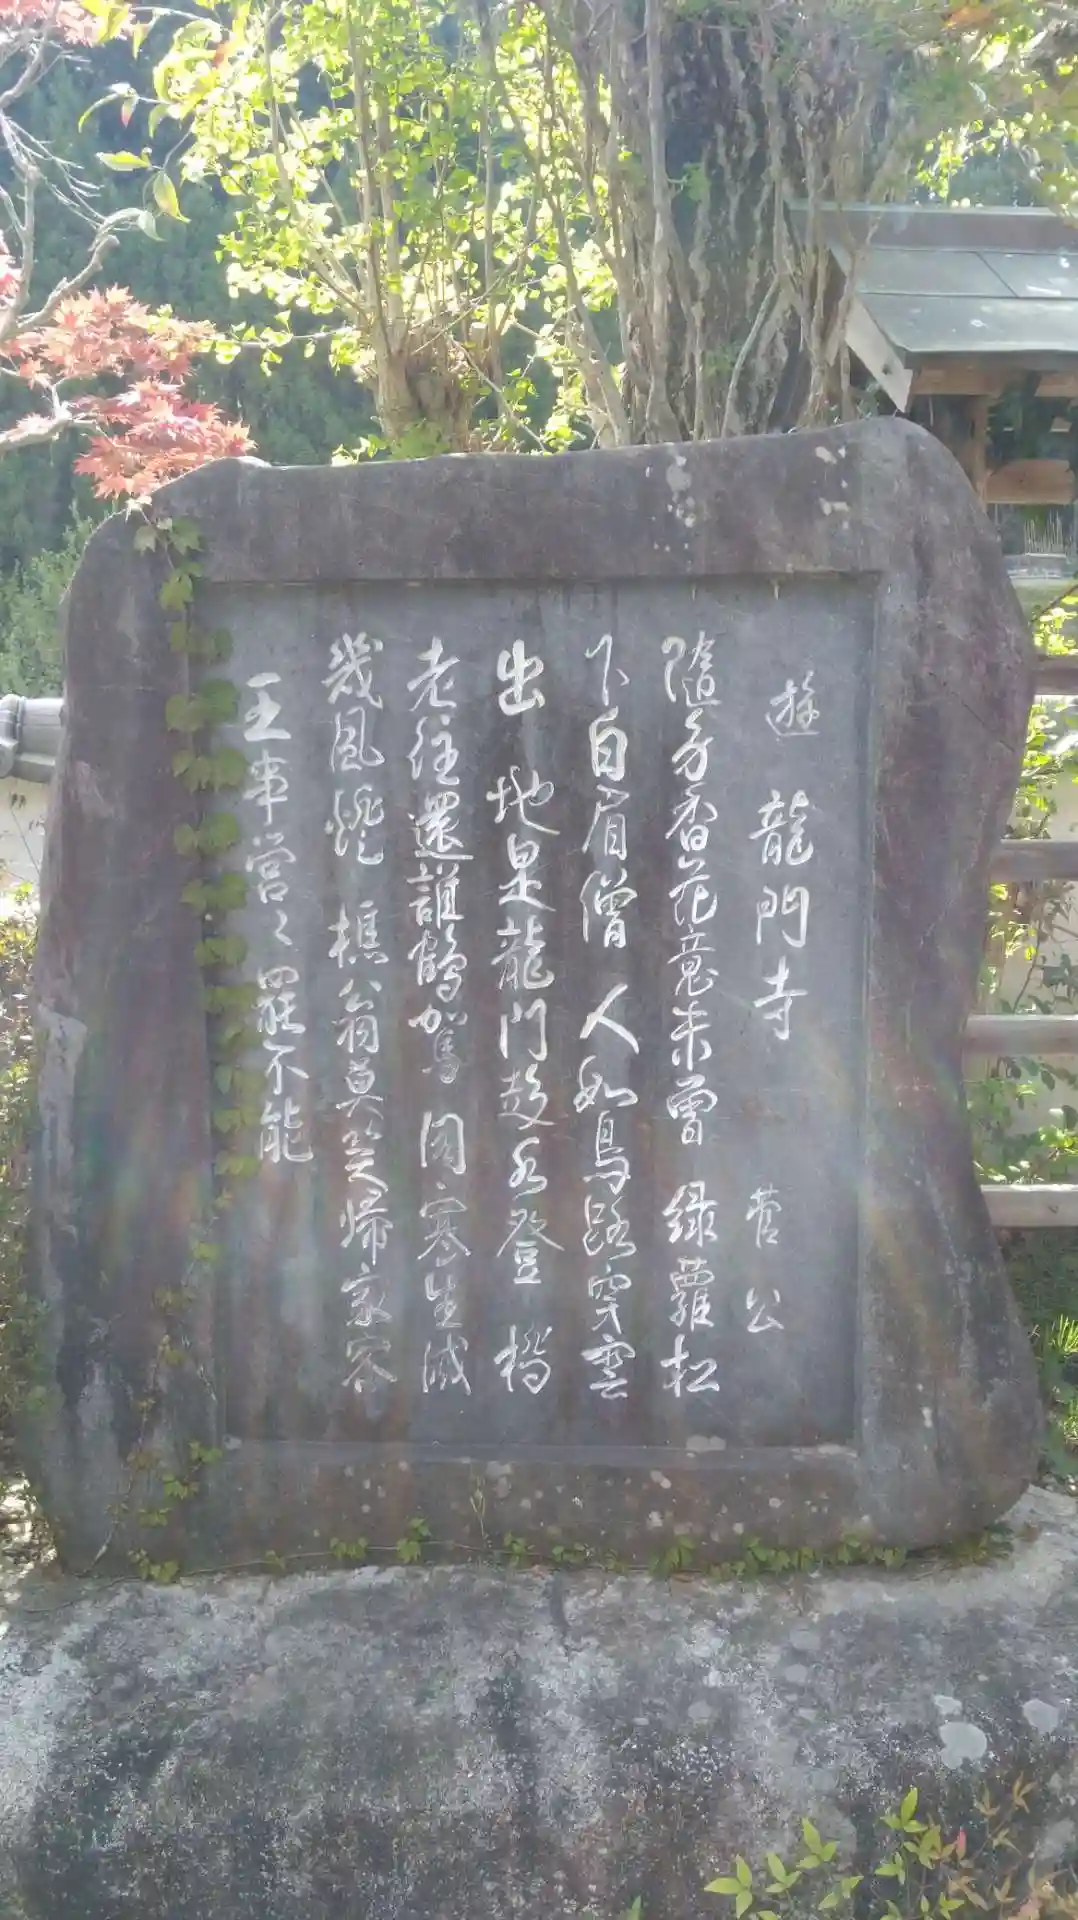 遊龍門寺 菅公
随分香花意未曽 緑蘿松
下白眉僧 人如鳥路穿雲
出 地是龍門趁水登 橋
老往還誰鶴駕 閣寒生滅
幾風燈 樵翁莫笑帰家客
王事営々罷不能